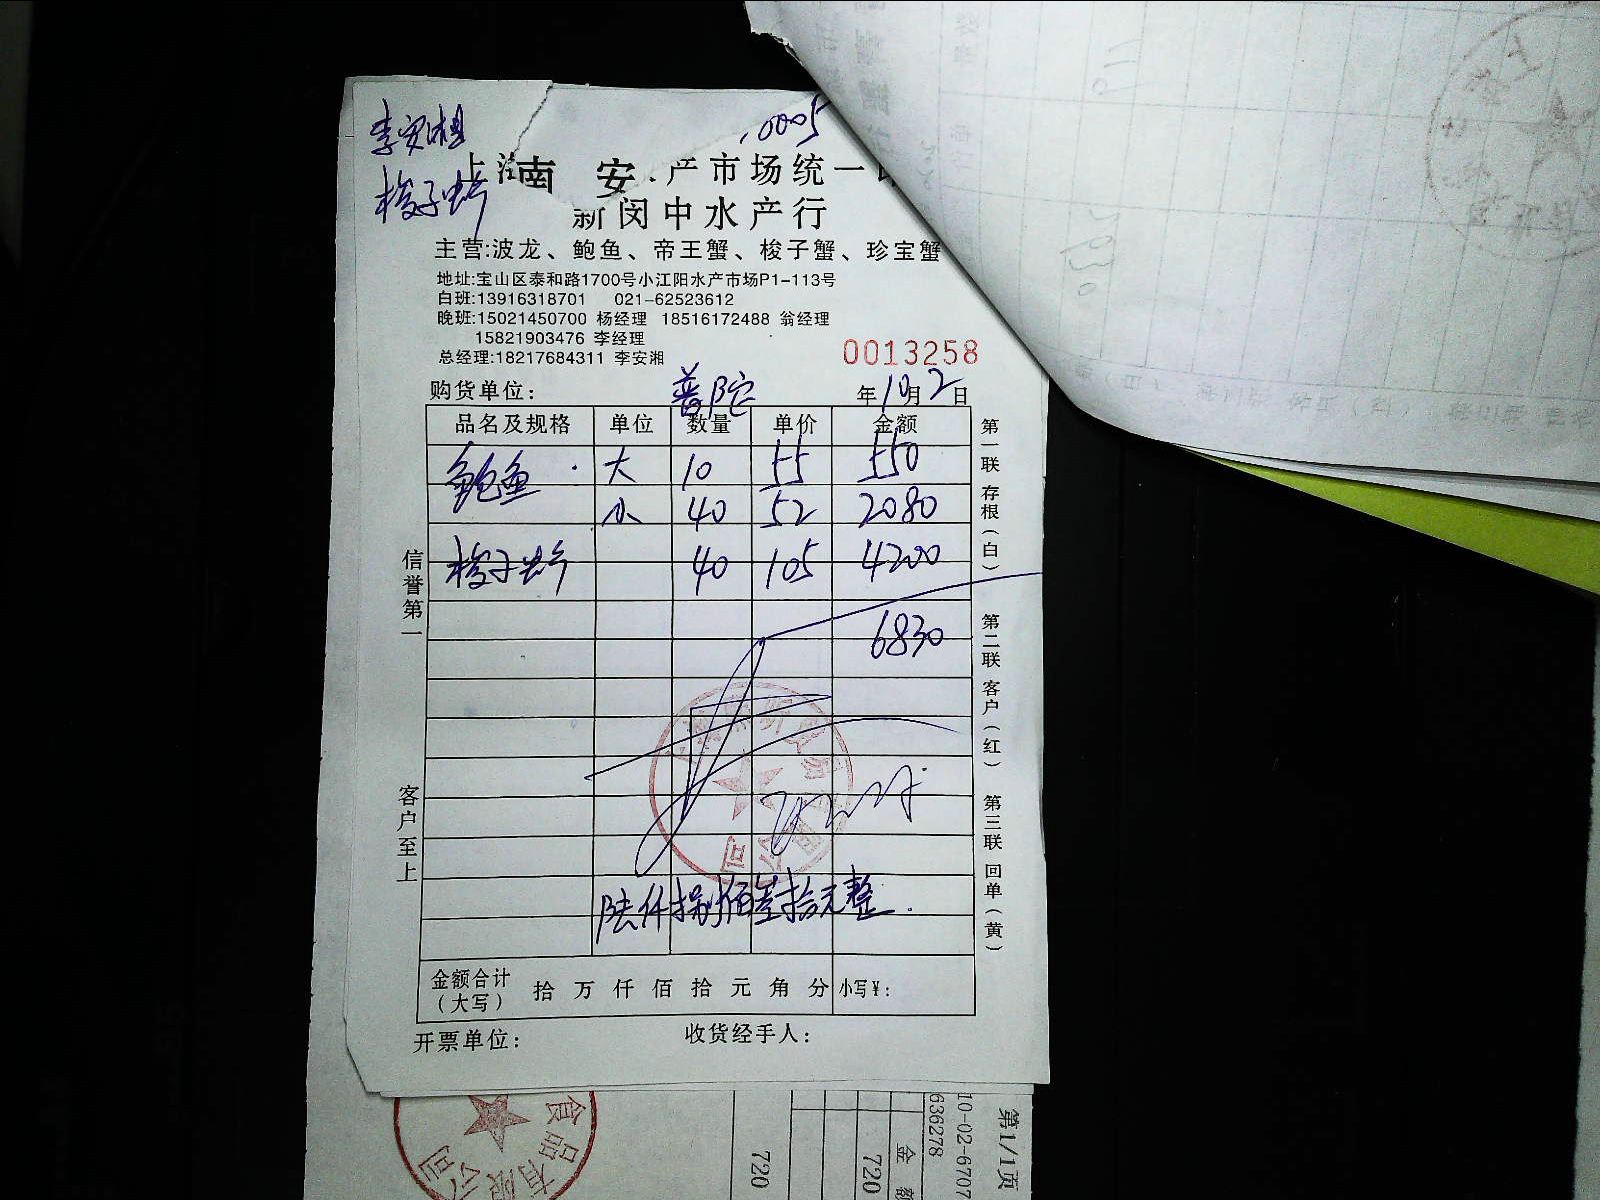 李安湘
.0005
梭子蟹
南 安 产市场统一
新闵中水产行
主营:波龙、鲍鱼、帝王蟹、梭子蟹、珍宝蟹
地址:宝山区泰和路1700号小江阳水产市场P1-113号
白班:13916318701 021-62523612
晚班:15021450700 杨经理 18516172488 翁经理
15821903476 李经理
总经理:18217684311 李安湘
0013258
购货单位: 普陀 年10月2日
品名及规格 单位 数量 单价 金额
鲍鱼 大 10 55 550
小 40 52 2080
梭子蟹 40 105 4200
6830
陆仟捌佰叁拾元整.
金额合计(大写) 拾 万 仟 佰 拾 元 角 分 小写¥:
开票单位: 收货经手人:
信誉第一
客户至上
第一联 存根(白)
第二联 客户(红)
第三联 回单(黄)
食品有限公司
720
金
720
636278
10-02-6707
第1/1页